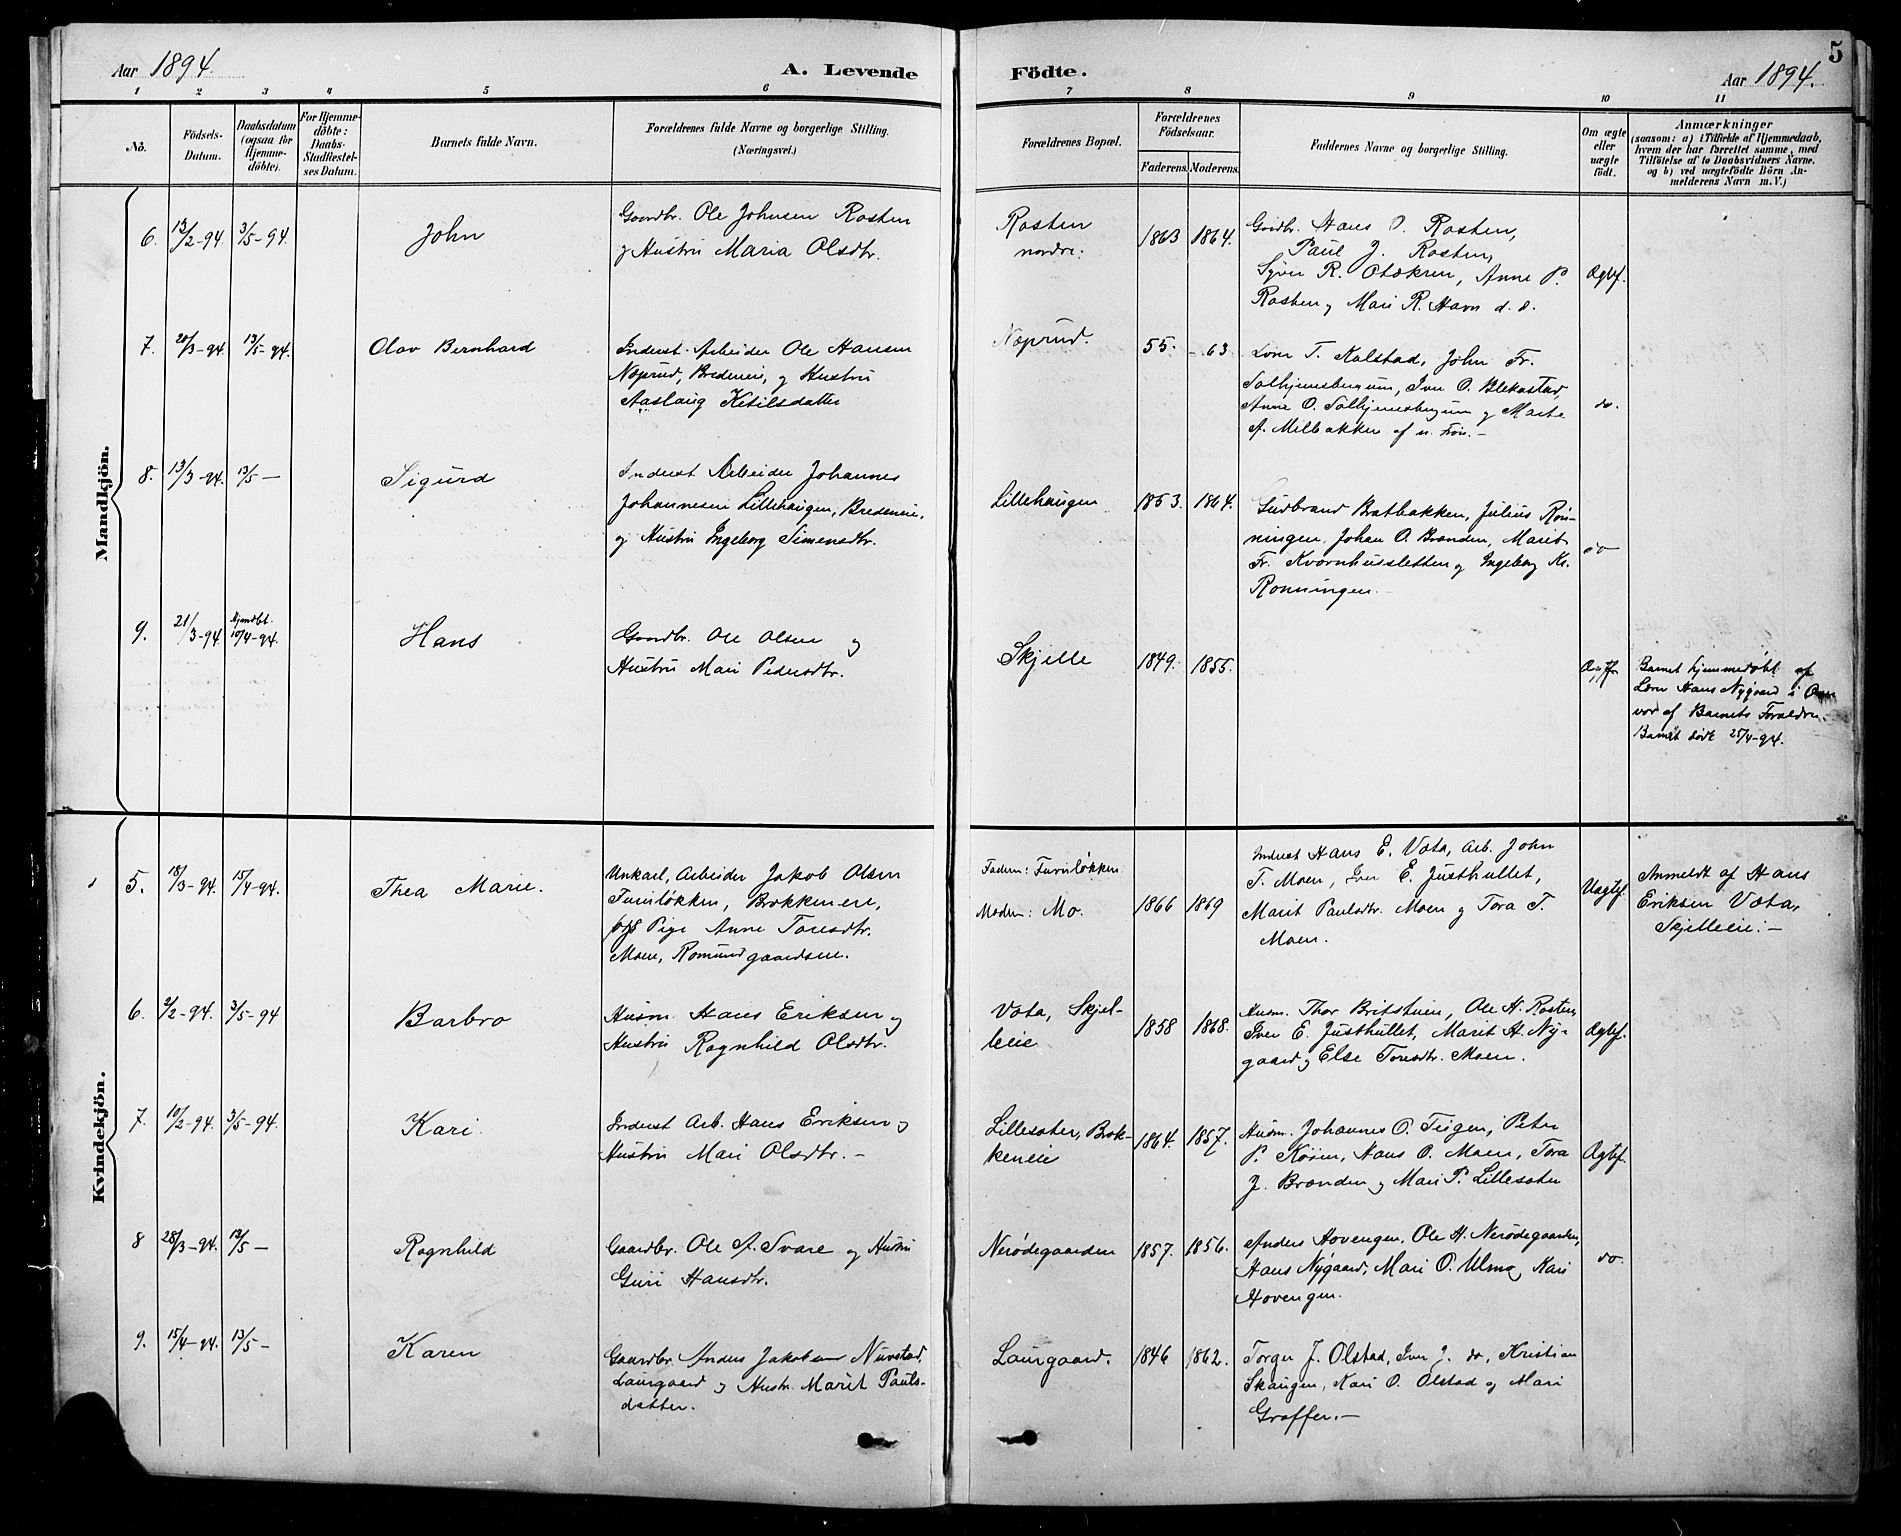 Aar 1894.
A. Levende
Födte.
Aar 1894.
5
1 2 3 4 5 6 7 8 9 10 11
No.
Födsels-
Datum.
Daabsdatum
(ogsaa for
Hjemme-
döbte).
For Hjemme-
döbte:
Daabs-
Stadfæstel-
ses Datum.
Barnets fulde Navn.
Forældrenes fulde Navne og borgerlige Stilling.
(Næringsvei.)
Forældrenes Bopæl.
Forældrenes
Födselsaar.
Faderens. Moderens.
Faddernes Navne og borgerlige Stilling.
Om ægte
eller
uægte
født.
Anmærkninger
(saasom: a) i Tilfælde af Hjemmedaab,
hvem der har forrettet samme, med
Tilföielse af to Daabsvidners Navne.
og b) ved uægtefödte Börn An-
melderens Navn m. V.)
Mandkjön.
6. 12/2-94. 3/5-94.
John
Gaardbr. Ole Johnsen Rosten
og Hustru Maria Olsdtr.
Rosten
nordre.
1863 1864.
Gaardbr. Hans O. Rosten,
Paul J. Rosten,
Syver R. Stokren, Anne P.
Rosten og Mari R. Havn d. d.
Ægtef.
7. 20/3-94. 13/5-94.
Olav Bernhard
Inderst. Arbeider Ole Hansen
Næprud, Bredeneie, og Hustru
Aaslaug Ketilsdatter
Næprud.
55. - 63.
Lærer T. Kalstad, John Fr.
Solhjemsbergum, Iver O. Blekastad,
Anne O. Solhjemsbergum og Marte
A. Melbakken af n. Fron.-
do.
8. 13/3-94. 13/5-
Sigurd
Inderst Arbeider Johannes
Johannesen Lillehaugen, Bredeneie,
og Hustru Ingeborg Simensdtr.
Lillehaugen
1853. 1864.
Gudbrand Bratbakken, Julius Røn-
ningen, Johan O. Brænden, Marit
Fr. Kvarnhussletten og Ingeborg Kr.
Rønningen.-
do
9. 21/3-94. Hjemdbt. 10/4-94.
Hans
Gaardbr. Ole Olsen og
Hustru Mari Pedersdtr.
Skjelle
1849. 1855.
Barnet hjemmedøbt af
Lærer Hans Nygaard i Overvær
af Barnets Forældre.
Barnet døde 25/4-94.
Kvindekjön.
5. 18/3-94. 15/4-94.
Thea Marie.
Unkarl, Arbeider Jakob Olsen
Furuløkken, Brokkeneie,
Pige Anne Toresdtr.
Moen, Romundgaardseie.
Fader: Furuløkken
Moder: Mo.
1866 1869
Inderst Hans E. Væta, Arb. John
T. Moen, Iver E. Justhullet,
Marit Paulsdtr. Moen og Tora T.
Moen.
Uægtef.
Anmeldt af Hans
Eriksen Væta,
Skjelleeie.-
6. 2/2-94. 3/5-94
Barbro
Husm. Hans Eriksen og
Hustru Ragnhild Olsdtr.
Væta, Skjel-
leeie
1858 1868.
Husm. Thor Britstuen, Ole H. Rosten,
Iver E. Justhullet, Marit H. Ny-
gaard og Else Toresdtr. Moen.
Ægtef.
7. 10/2-94. 3/5-94.
Kari.
Inderst Arb. Hans Eriksen og
Hustru Mari Olsdtr.-
Lillesæter, Brok-
keneie
1864. 1857.
Husm. Johannes O. Teigen, Peter
P. Kosen, Hans O. Moen, Tora
J. Brænden og Mari P. Lillesæter
Ægtef.
8 28/3-94. 13/5-
Ragnhild
Gaardbr. Ole A. Svare og Hustru
Guri Hansdtr.
Nerødegaarden
1857. 1856.
Anders Hovengen, Ole H. Nerødegaarden,
Hans Nygaard, Mari O. Ulmo, Kari
Hovengen.
do.
9. 15/4-94. 13/5-
Karen
Gaardbr. Anders Jakobsen Nustad,
Laurgaard og Hustr. Marit Pauls-
datter.
Laurgaard.
1846 1862.
Torger J. Olstad, Iver J. do, Kristian
Skaugen, Kari O. Olstad og Mari
Graffer.-